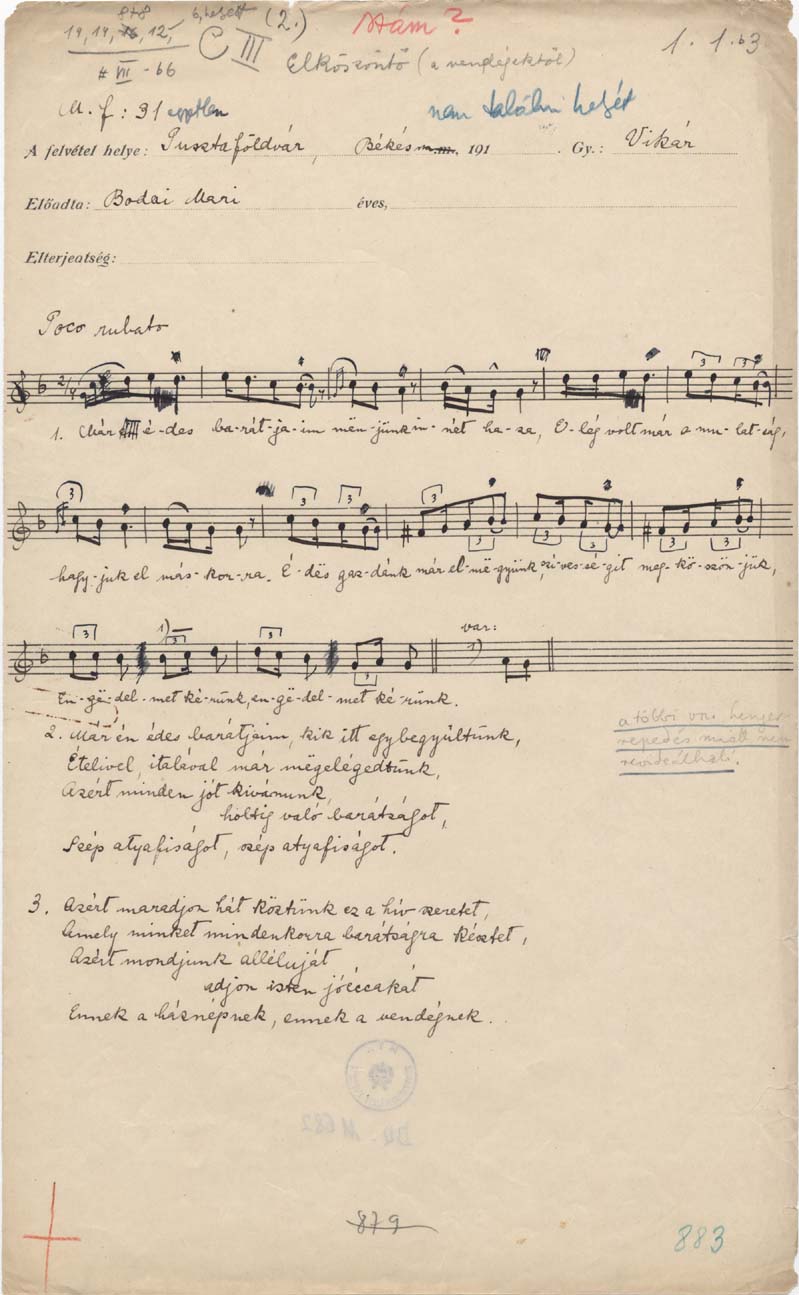 8+8 6, helyett (2.) Szám?
14, 14, 16, 12, C III 1. 1. 63
# VII - 66 Elköszöntő (a vendégektől)
M. f : 31 egyetlen nem találni helyét
A felvétel helye: Pusztaföldvár, Békés m.m. 191 . Gy.: Vikár
Előadta: Bodai Mari éves,
Elterjeatség:
Poco rubato
1. Már é-des ba-rát-ja-im mën-jünk in-nét ha-za, E-lég volt már a mu-lat-ság,
hagy-juk el más-kor-ra. É-dës gaz-dánk már el-më-gyünk, szi-ves-sé-git meg-kö-szön-jük,
1) var: 1)
En-gë-del-met ké-rünk, en-gë-del-met ké-rünk.
2. Már én édes barátjaim, kik itt egybegyűltünk,
Ételivel, italával már mëgelégedtünk,
Azért minden jót kivánunk,
holtig való barátságot,
Szép atyafiságot, szép atyafiságot.
a többi vsz. henger
repedés miatt nem
revideálható.
3. Azért maradjon hát köztünk ez a hív szeretet,
Amely minket mindenkorra barátságra késztet,
Azért mondjunk alléluját
adjon isten jóéccakát
Ennek a háznépnek, ennek a vendégnek.
879
883